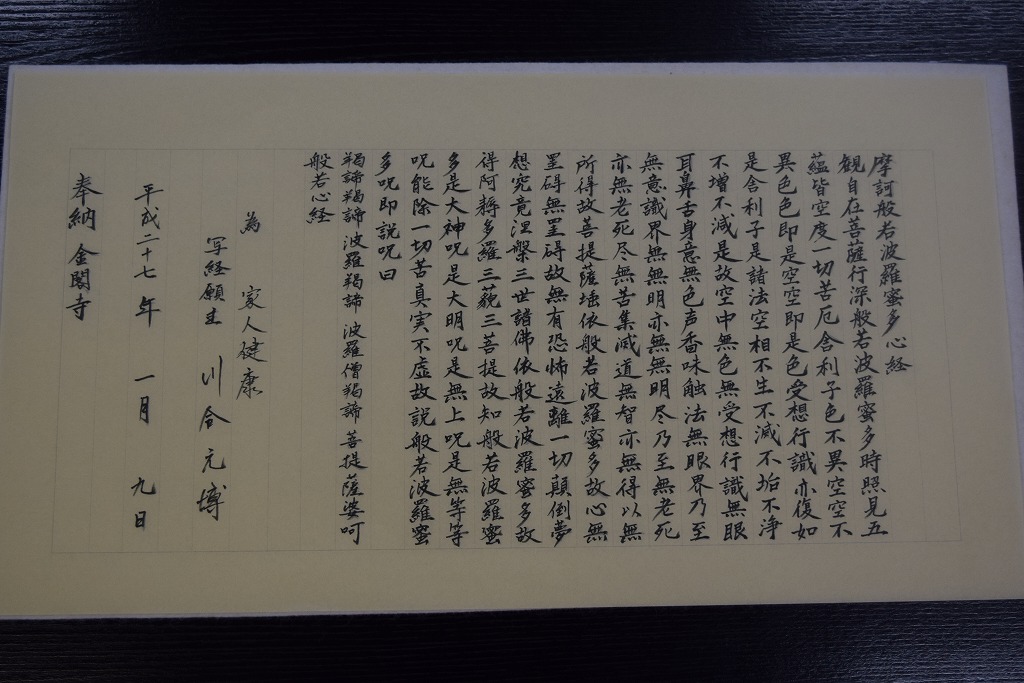 摩訶般若波羅蜜多心経
観自在菩薩行深般若波羅蜜多時照見五
蘊皆空度一切苦厄舎利子色不異空空不
異色色即是空空即是色受想行識亦復如
是舎利子是諸法空相不生不滅不垢不浄
不増不減是故空中無色無受想行識無眼
耳鼻舌身意無色声香味触法無眼界乃至
無意識界無無明亦無無明尽乃至無老死
亦無老死尽無苦集滅道無智亦無得以無
所得故菩提薩埵依般若波羅蜜多故心無
罣碍無罣碍故無有恐怖遠離一切顛倒夢
想究竟涅槃三世諸佛依般若波羅蜜多故
得阿耨多羅三藐三菩提故知般若波羅蜜
多是大神呪是大明呪是無上呪是無等等
呪能除一切苦真実不虚故説般若波羅蜜
多呪即説呪曰
羯諦羯諦波羅羯諦波羅僧羯諦菩提薩婆呵
般若心経
為 家人健康
写経願主 川合元博
平成二十七年 一月 九日
奉納 金閣寺